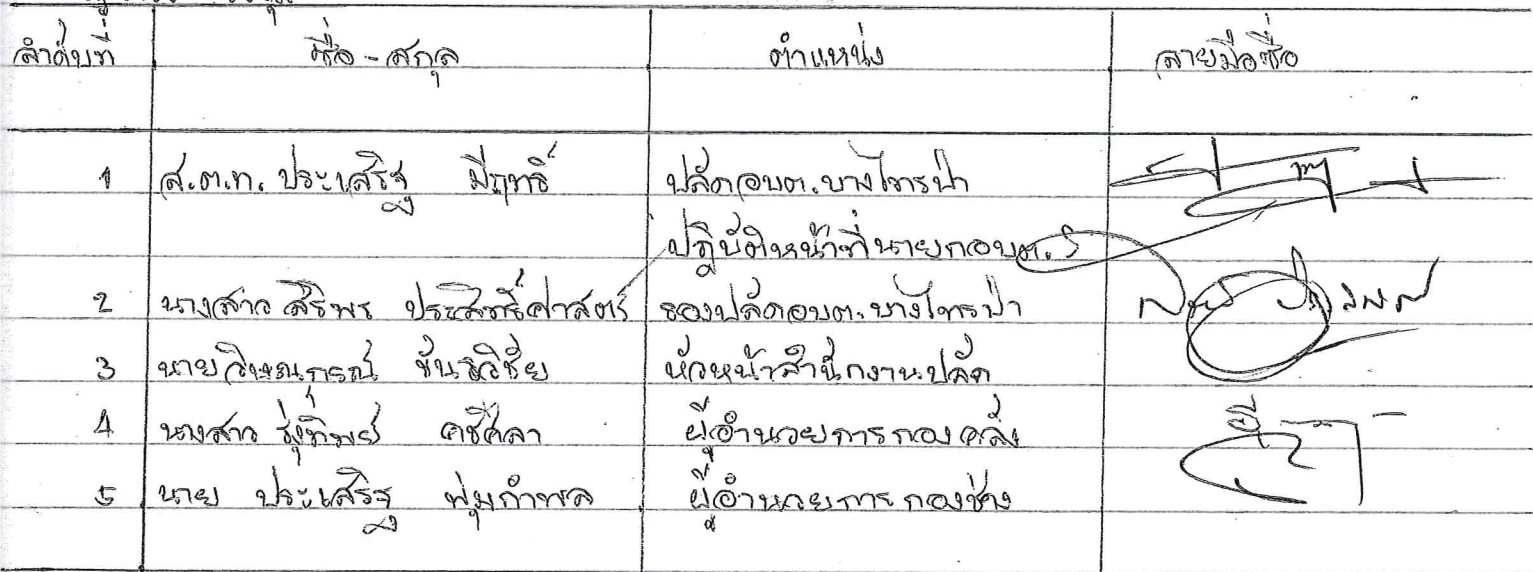 ลำดับที่ ชื่อ - สกุล ตำแหน่ง ลายมือชื่อ
1 ส.ต.ท. ประเสริฐ มีฤทธิ์ ปลัดอบต.บางไทรป่า
ปฏิบัติหน้าที่นายกอบต.
2 นางสาว สิริพร ประสิทธิ์ศาสตร์ รองปลัดอบต.บางไทรป่า
3 นาย หัวหน้าสำนักงานปลัด
4 นางสาว รุ่งทิพย์ คชศิลา ผู้อำนวยการกองคลัง
5 นาย ประเสริฐ พุ่มกำพล ผู้อำนวยการกองช่าง